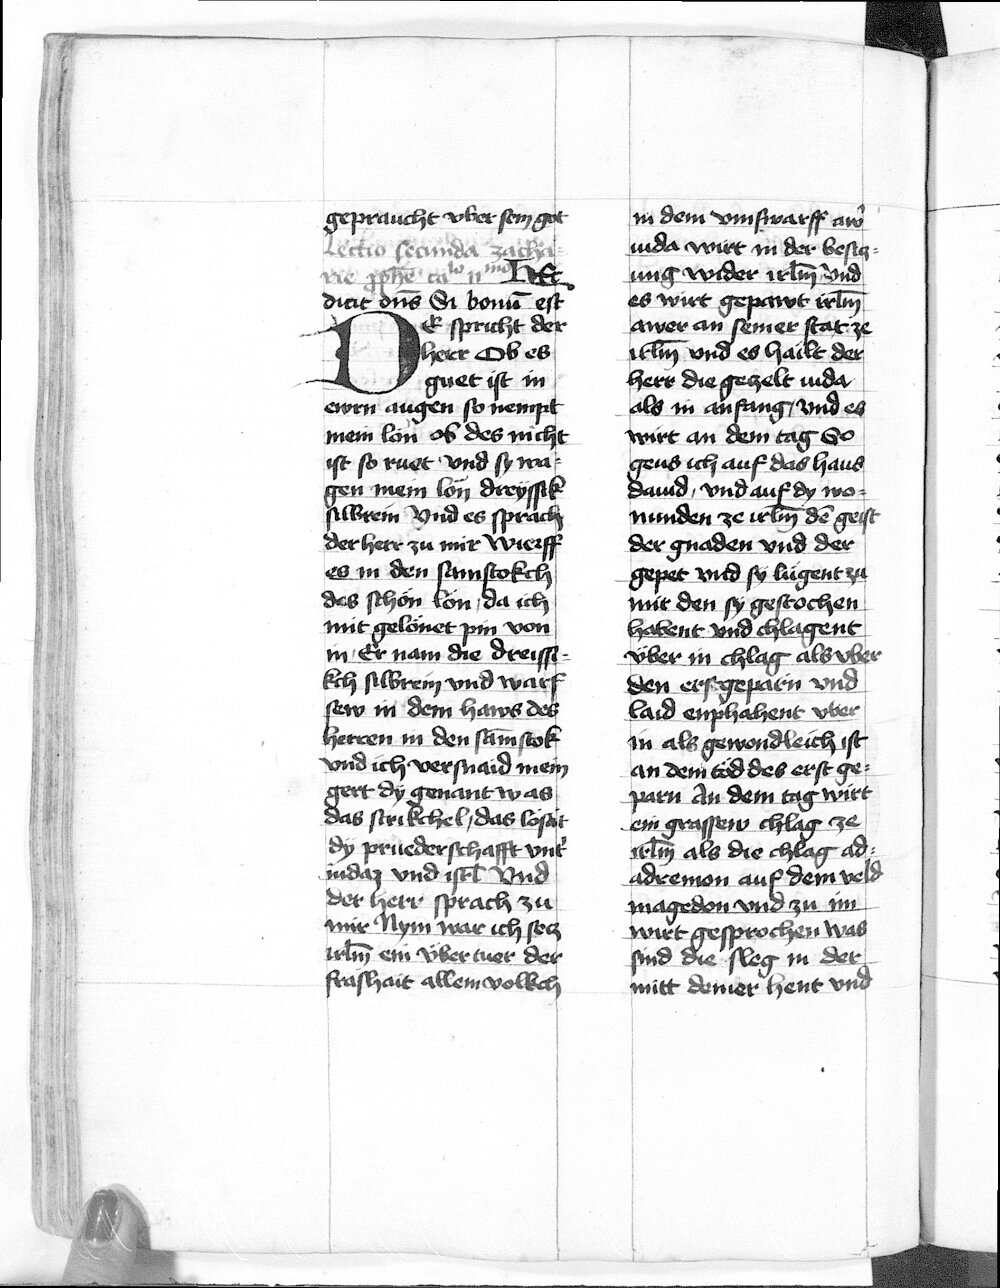 gepraucht vber sein got
Lectio secunda zacha-
rie ꝓphe ca^lo 11^mo HEc
dicit dn̄s Si bonū est
DE spricht der
herr Ob es
guet ist in
ewrn augen so nempt
mein lōn ob des nicht
ist so ruet vnd sy wa-
gen mein lön dreyssik
silbrein Vnd es sprach
der herr zu mir Wierff
es in den samstokch
das schön lön, da ich
mit gelönet pin von
in, Er nam die dreissi-
kch silbrein vnd warf
sew in dem haws des
herren in den sāmstok
vnd ich versnaid mein
gert dy genant was
das strikchel, das löset
dy pruederschafft vnt᷑
iudaz vnd isrl̄ Vnd
der herr sprach zu
mir Nym war ich secz
irlm̄ ein vbertuer der
frashait allem volkch
in dem vmswarff aw᷑
iuda wirt in der besicz-
ung wider irlm̄ Vnd
es wirt gepawt irlm̄
awer an seiner stat ze
irlm̄ vnd es hailt der
herr die geczelt iuda
als in anfang, Vnd es
wirt an dem tag So
geus ich auf das haus
dauid, vnd auf dy wo-
nunden ze irlm̄ dē geist
der gnaden vnd der
gepet vnd sy lügent zu
mir den sy gestochen
habent vnd chlagent
vber in chlag als vber
den erstgeparn vnd
laid enphahent vber
in als gewondleich ist
an dem töd des erst ge-
parn An dem tag wirt
ein grassew chlag ze
irlm̄ als die chlag ad-
adremon auf dem veld
magedon vnd zu im
wirt gesprochen was
sind die sleg in der
mitt deiner hent vnd